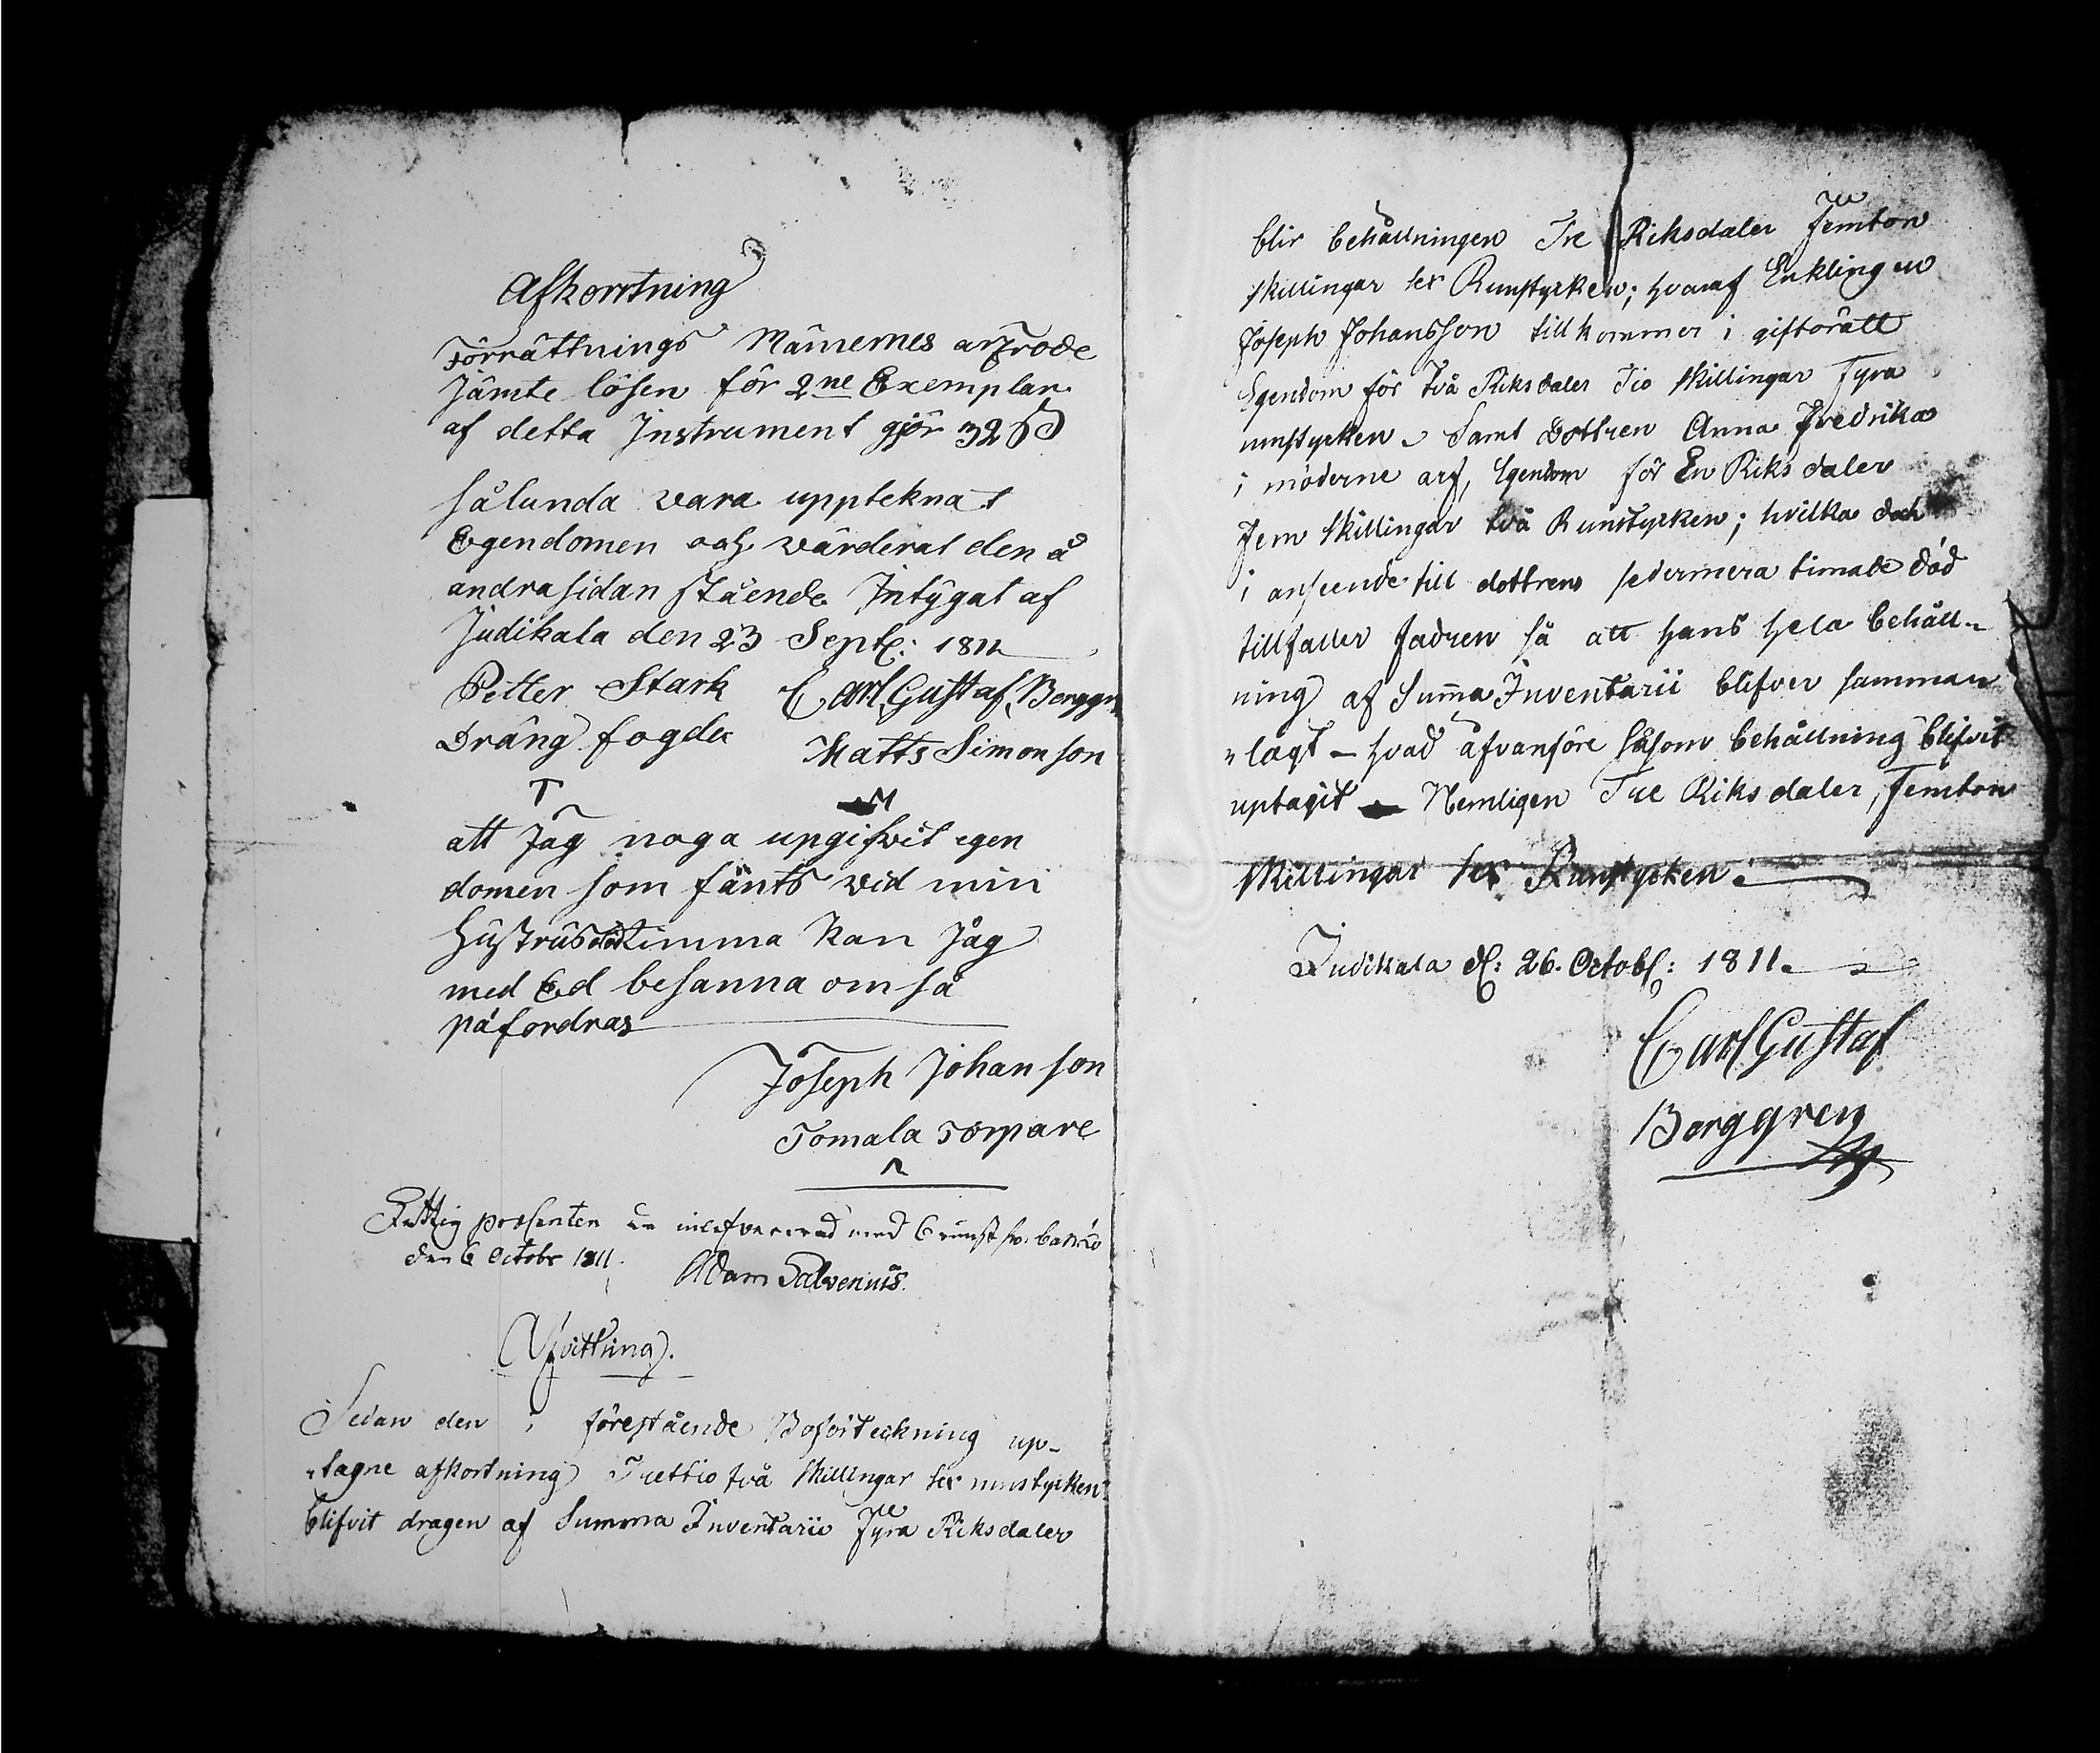 Afkorrtning
Förrättnings Männernes arfvode
Jämte lösen för 2ne Exemplar
af detta Instrument gjör 32 ß
sålunda vara uppteknat
Egendomen och värderat den å
andra sidan stående Intÿgat af
Judikala den 23 Septr: 1811
Petter Stark Carl Gustaf Berggr
Dräng fogde Matts Simonson
T M
att Jag noga upgifvit egen
domen som fants vid min
Hustrus död timma kan Jag
med Ed besanna om så
påfordras
Joseph Johanson
Tomala Torpare
Fattig procenten är inlefvererad med 6 runst
den 6 Octobr 1811.
Adam Salvenius.
Afvittring.
Sedan den i förestående Boförteckning up-
tagne afkortning Trettio två skillingar sex runstycken
blifvit dragen af Summa Inventarii Fyra Riksdaler
blir behållningen Tre Riksdaler Femton
skillingar sex Runstycken; hvaraf Enklingen
Joseph Johansson tillkommer i giftorätt
Egendom för Två Riksdaler Tio skillingar Fyra
runstycken - Samt Dottren Anna Fredrika
i möderne arf, Egendom för En Riksdaler
Fem skillingar två Runstycken; hvilka dock
i anseende till dottrens sedermera timade död
tillfaller fadren så att hans hela behåll-
ning af Summa Inventarii blifver samman
lagt - hvad åfvanföre såsom behållning blifvit
uptagit Nemligen Tre Riksdaler, Femton
skillingar sex Runstycken.
Judikala d: 26. Octobr: 1811.
Carl Gustaf
Berggren